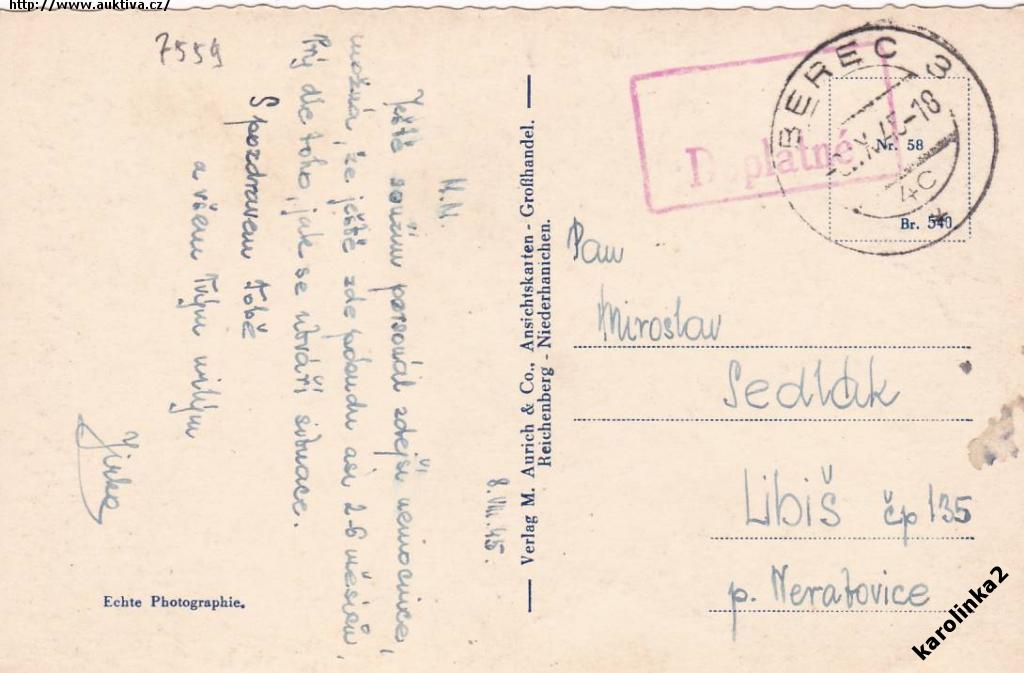 http://www.auktiva.cz/
7559
8.VIII.45.
M.N.
Ještě součin personál zdejší nemocnice,
možná, že ještě zde pobudu asi 2-6 měsíců,
Prý dle toho, jak se utváří situace.
S pozdravem Tobě
a všem Tvým milým
Jirka
Echte Photographie.
Verlag M. Aurich & Co., Ansichtskarten - Großhandel.
Reichenberg - Niederhanichen.
Doplatné
BEREC 3
X.45-18
4c
Nr. 58
Br. 540
Pan
Miroslav
Sedlák
Libiš čp 135
p. Neratovice
karolinka2